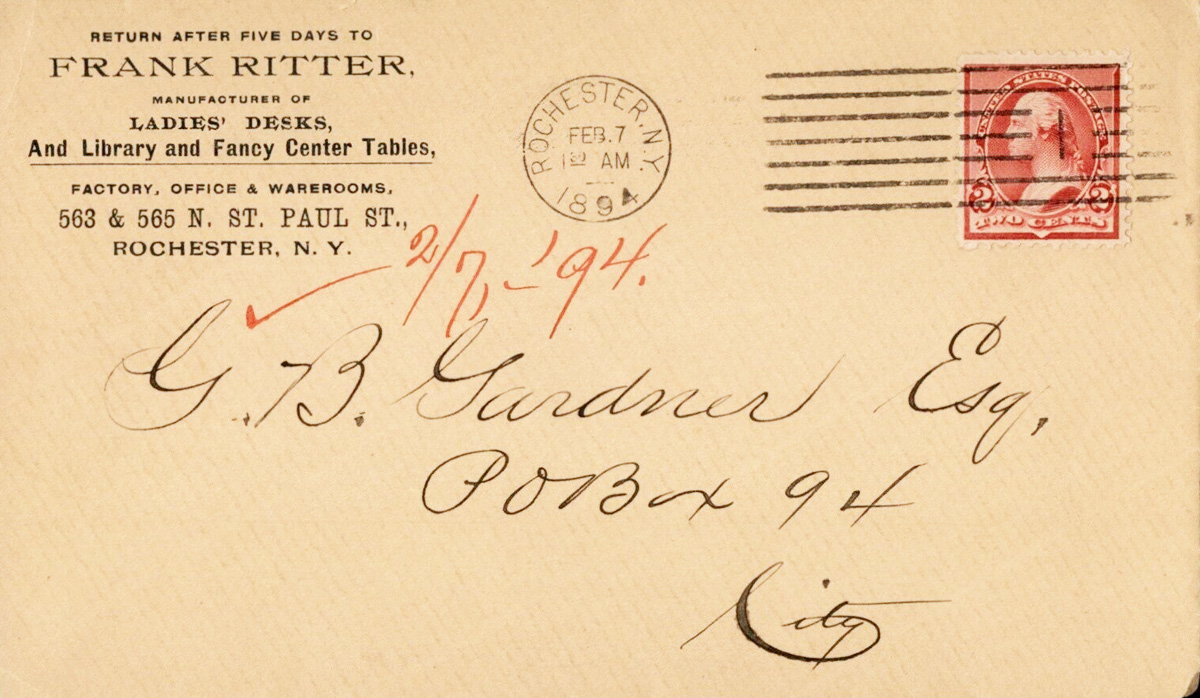 RETURN AFTER FIVE DAYS TO
FRANK RITTER,
MANUFACTURER OF
LADIES' DESKS,
And Library and Fancy Center Tables,
FACTORY, OFFICE & WAREROOMS,
563 & 565 N. ST. PAUL ST.,
ROCHESTER, N. Y.
ROCHESTER, N.Y.
FEB. 7
1 30 AM
1894
UNITED STATES POSTAGE
2 2
TWO CENTS
2/7, - '94.
G. B. Gardner Esq,
P O Box 94
City